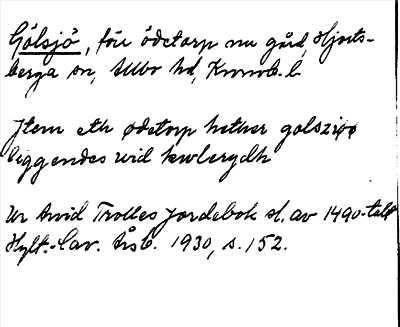 Gölsjö, förr ödetorp nu gård, Hjorts-
berga sn, Allbo hd, Kronob. l.
Jtem eth ødetorp hether golsziøø
liggendes wid hwlerydh
Ur Arvid Trolles jordebok sl. av 1490-talet
Hylt.-Cav. Årsb. 1930, s. 152.